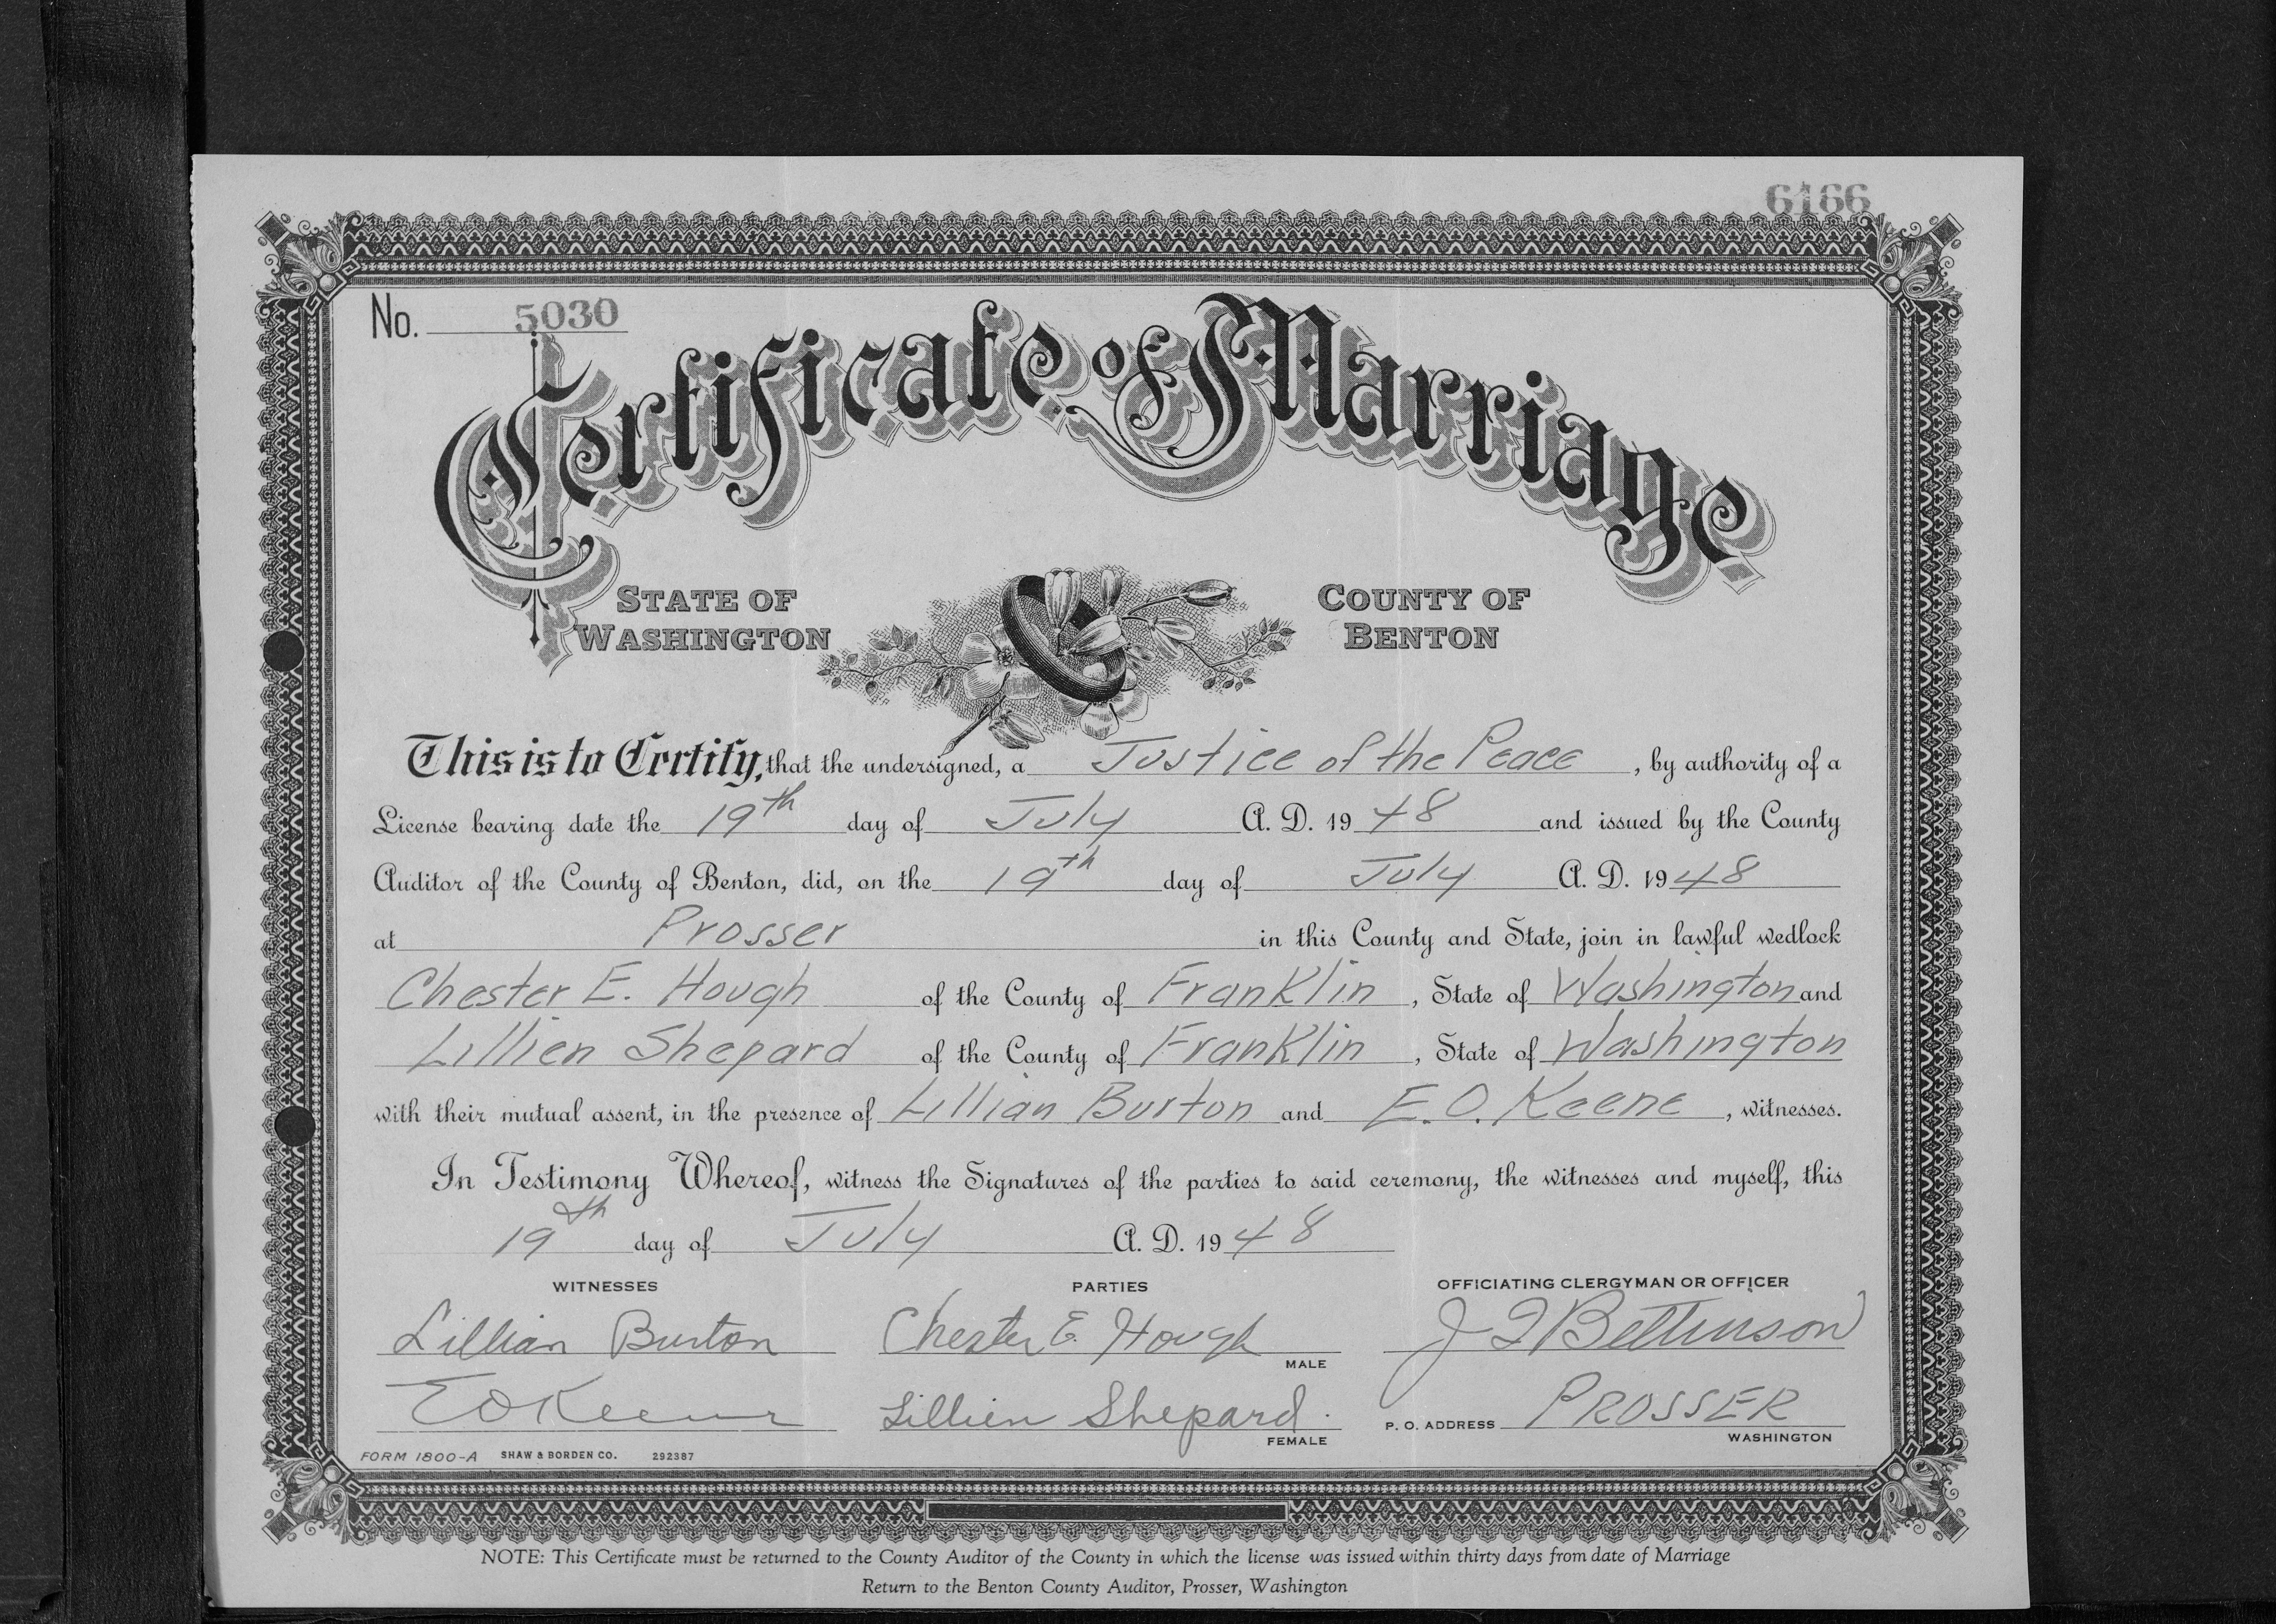 6166
No. 5030
Certificate of Marriage
STATE OF WASHINGTON
COUNTY OF BENTON
This is to Certify, that the undersigned, a Justice of the Peace, by authority of a
License bearing date the 19th day of July A. D. 1948 and issued by the County
Auditor of the County of Benton, did, on the 19th day of July A. D. 1948
at Prosser in this County and State, join in lawful wedlock
Chester E. Hough of the County of Franklin, State of Washington and
Lillien Shepard of the County of Franklin, State of Washington
with their mutual assent, in the presence of Lillian Burton and E. O. Keene, witnesses.
In Testimony Whereof, witness the Signatures of the parties to said ceremony, the witnesses and myself, this
19th day of July A. D. 1948
WITNESSES
PARTIES
OFFICIATING CLERGYMAN OR OFFICER
Lillian Burton
Chester E. Hough
MALE
J F Bettinson
E O Keene
Lillien Shepard.
FEMALE
P. O. ADDRESS PROSSER
WASHINGTON
FORM 1800-A SHAW & BORDEN CO. 292387
NOTE: This Certificate must be returned to the County Auditor of the County in which the license was issued within thirty days from date of Marriage
Return to the Benton County Auditor, Prosser, Washington